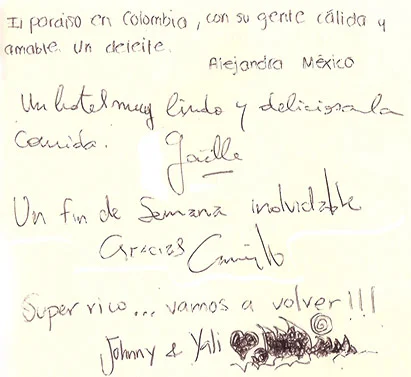 El paraiso en Colombia, con su gente cálida y
amable. Un deleite.
Alejandra México
Un hotel muy lindo y deliciosa la
comida.
Gaëlle
Un fin de semana inolvidable
Gracias Camilo
Super rico... vamos a volver!!!
Johnny & Yali